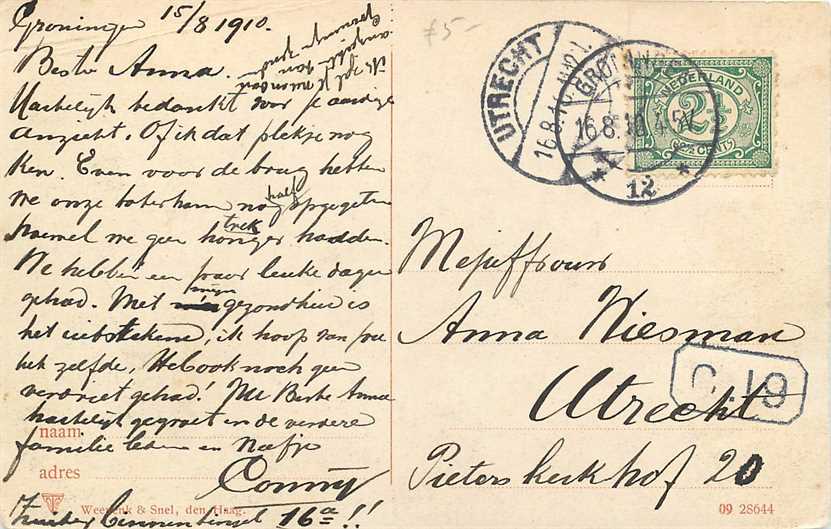 Groningen 15/8 1910.
Beste Anna.
Hartelijk bedankt voor je aardige
anzicht. Of ik dat plekje nog
ken. Even voor de brug hebben
we onze boterham nog half opgegeten
hoewel we geen honger trek hadden.
We hebben een paar leuke dagen
gehad. Met mijn gezondheid is
het uitstekend, ik hoop van jou
het zelfde, Heb ook noch geen
verdriet gehad! Nu Beste Anna
hartelijk gegroet en de verdere
naam
familie leden en Neefje
adres
Conny
Zuiderbinnensingel 16a!!
Weenenk & Snel, den Haag.
f 5-
UTRECHT
16.8.10
GRONINGEN
16.8.10.4-5N
12
NEDERLAND
2½
CENT
Mejuffrouw
Anna Wiesman
Utrecht
C 19
Pieterskerkhof 20
09 28644